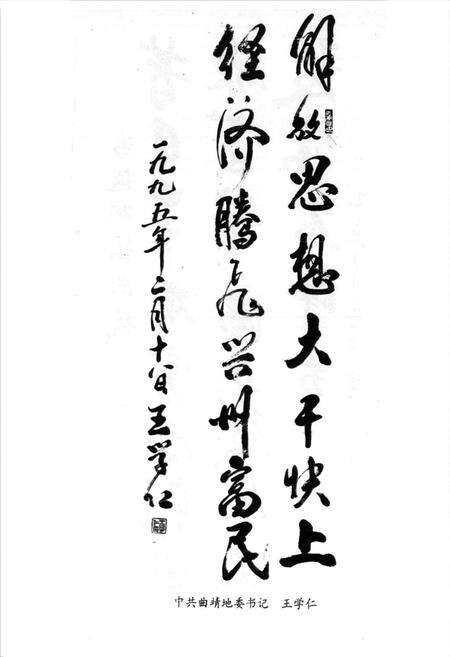 解放思想大干快上
经济腾飞兴州富民
一九九五年二月十八日王学仁
中共曲靖地委书记 王学仁